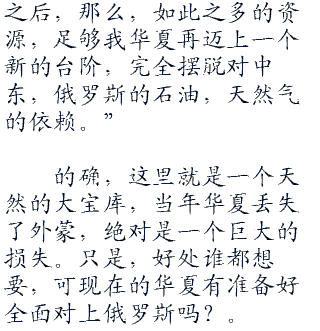 之后，那么，如此之多的资
源，足够我华夏再迈上一个
新的台阶，完全摆脱对中
东，俄罗斯的石油，天然气
的依赖。”
的确，这里就是一个天
然的大宝库，当年华夏丢失
了外蒙，绝对是一个巨大的
损失。只是，好处谁都想
要，可现在的华夏有准备好
全面对上俄罗斯吗？。